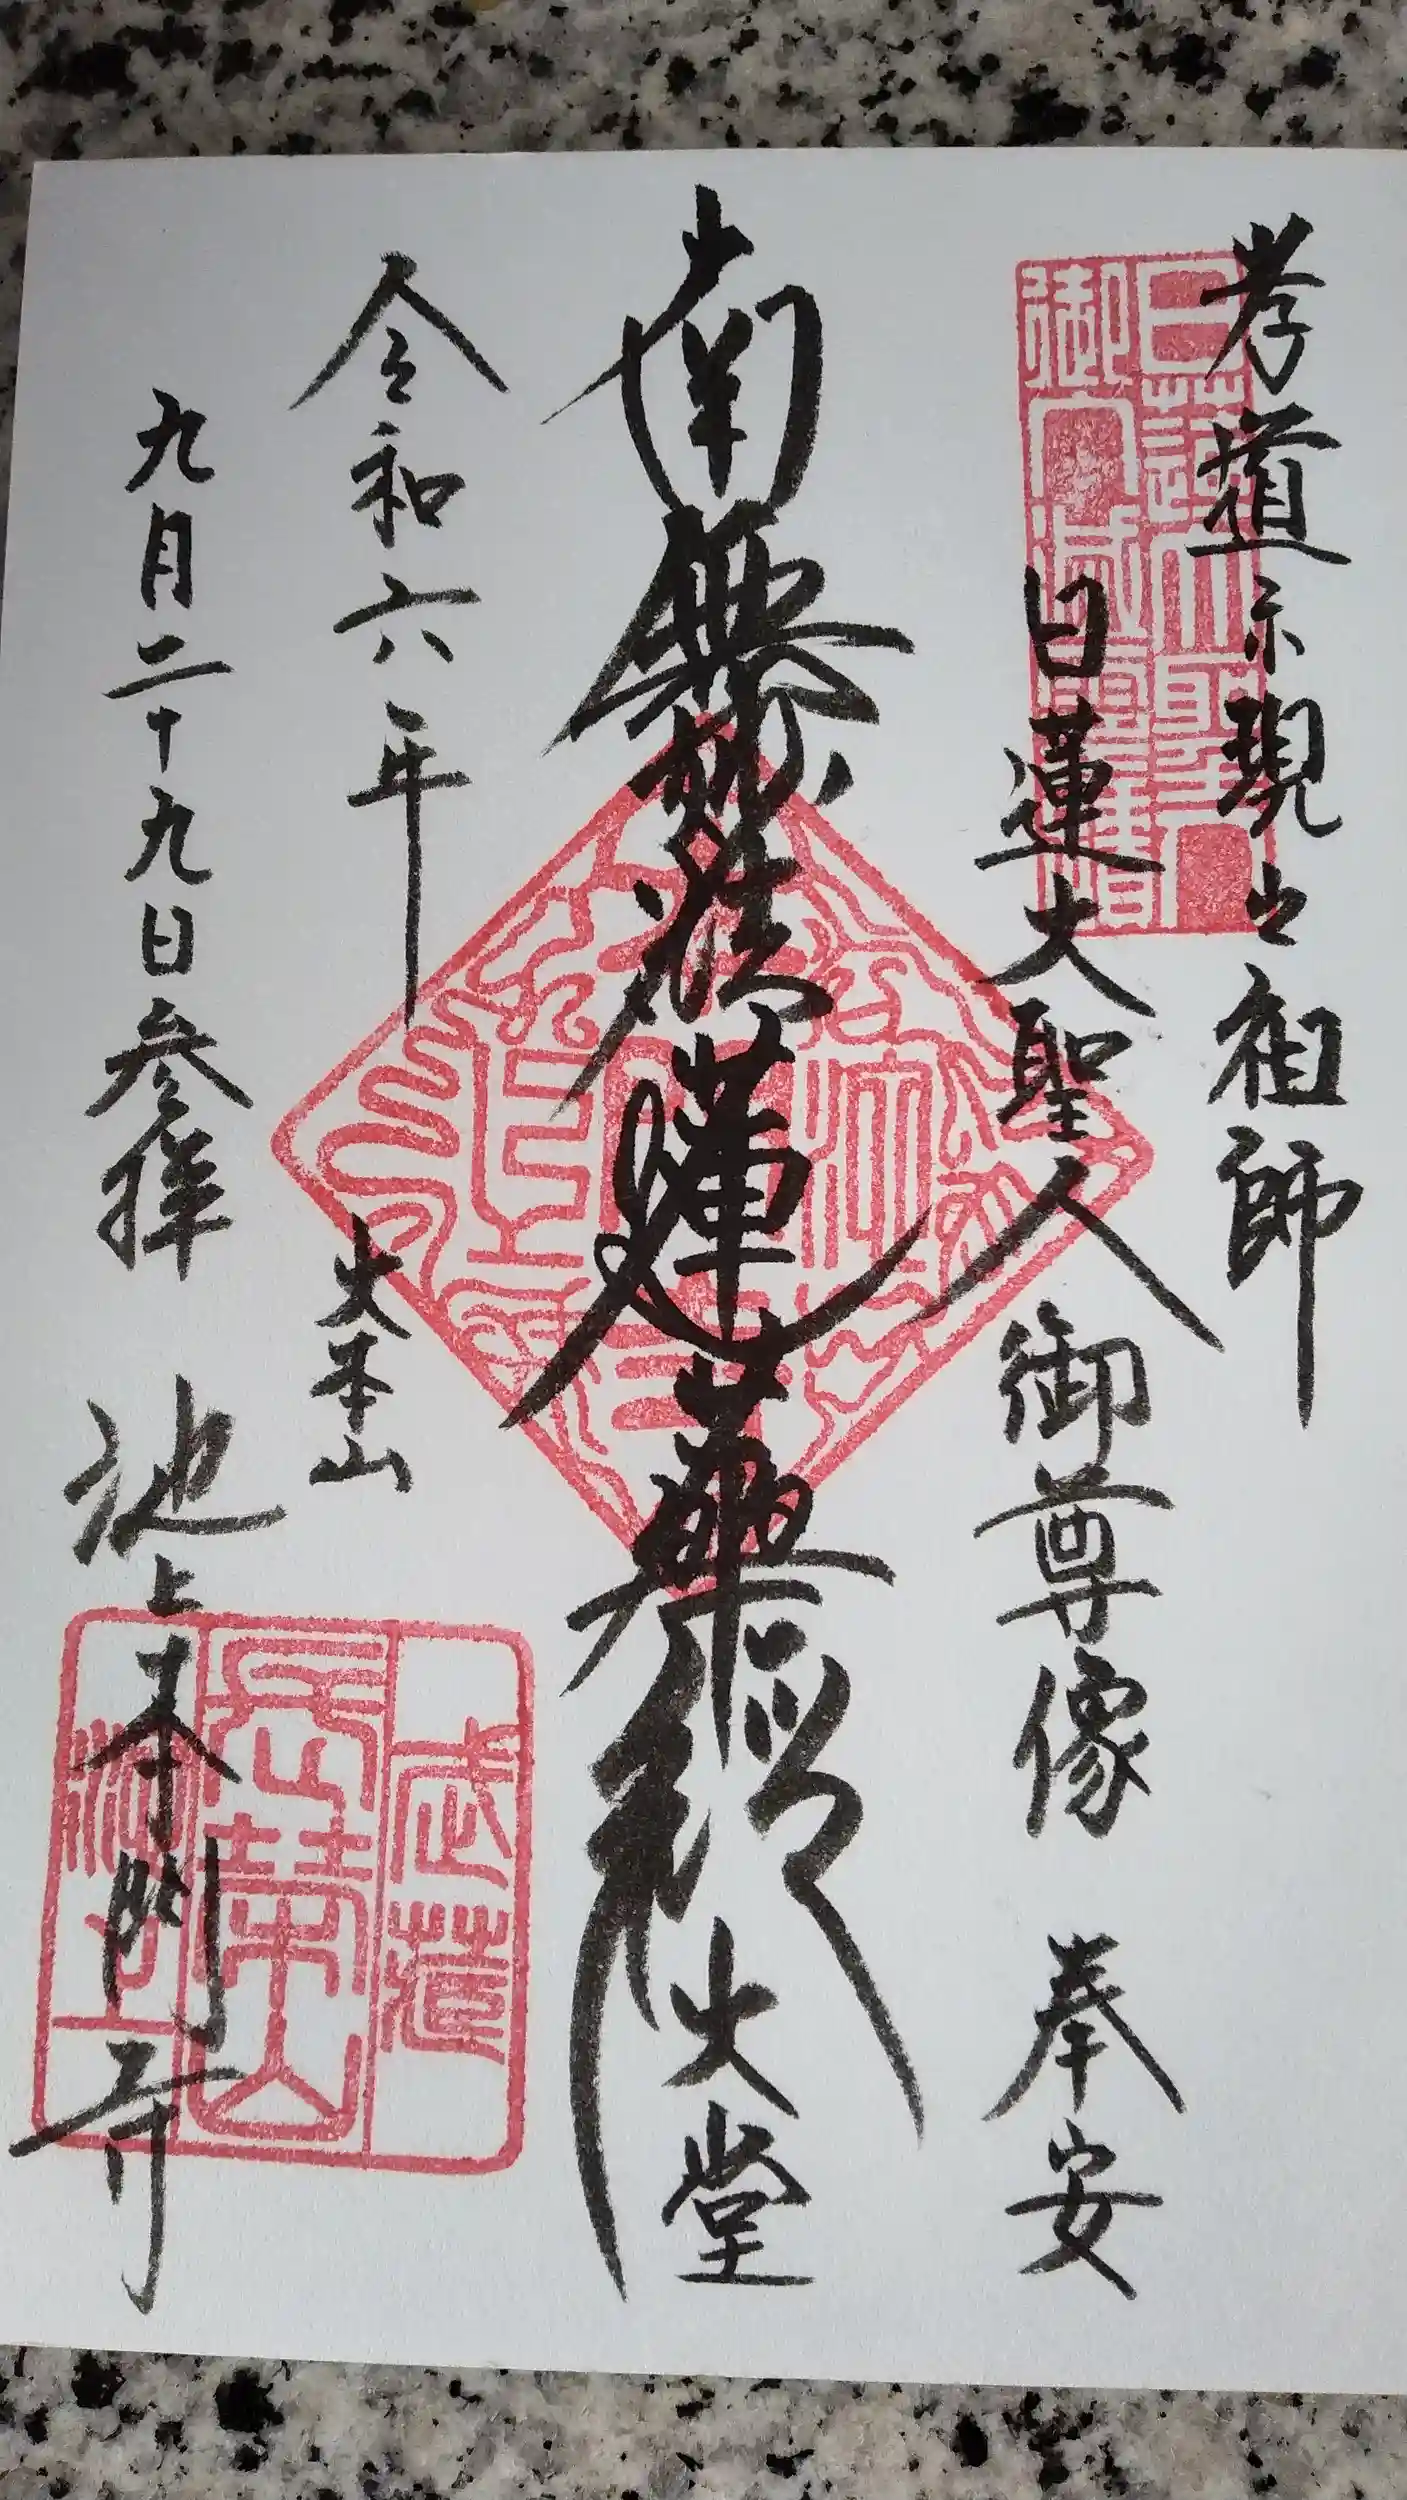 孝道示現之祖師
日蓮大聖人御尊像 奉安
南無妙法蓮華経
大堂
令和六年
九月二十九日参拝
大本山
池上本門寺
武蔵
長栄山
池上